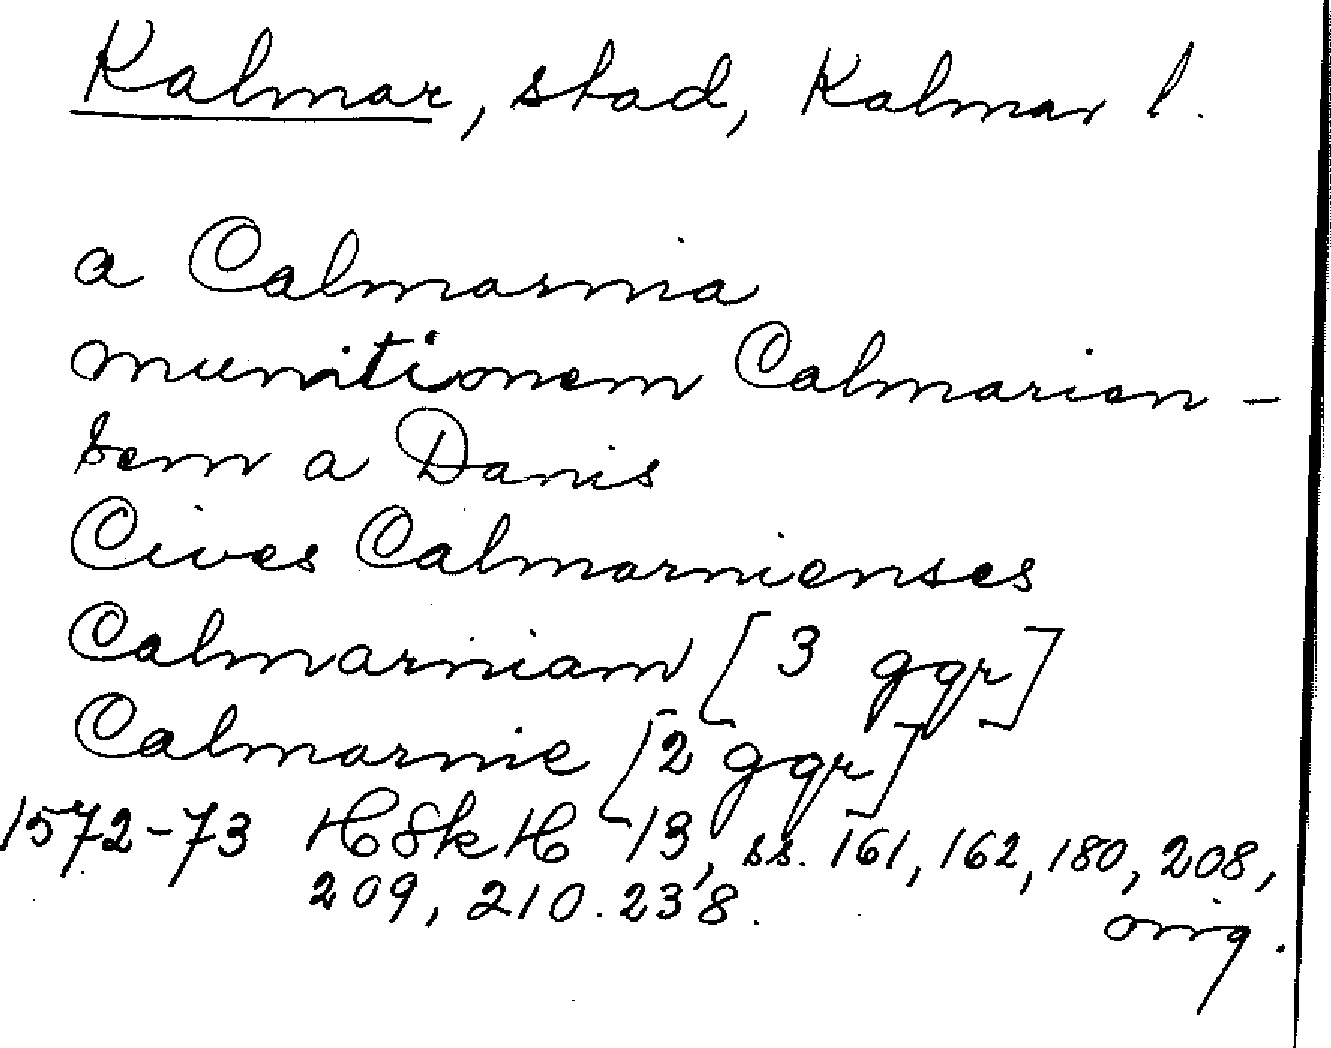 Kalmar, stad, Kalmar l.
a Calmarnia
munitionem Calmarien-
sem a Danis
Cives Calmarnienses
Calmarniam [3 ggr]
Calmarnie [2 ggr]
1572-73 HSkH 13, ss. 161, 162, 180, 208,
209, 210. 238.
orig.